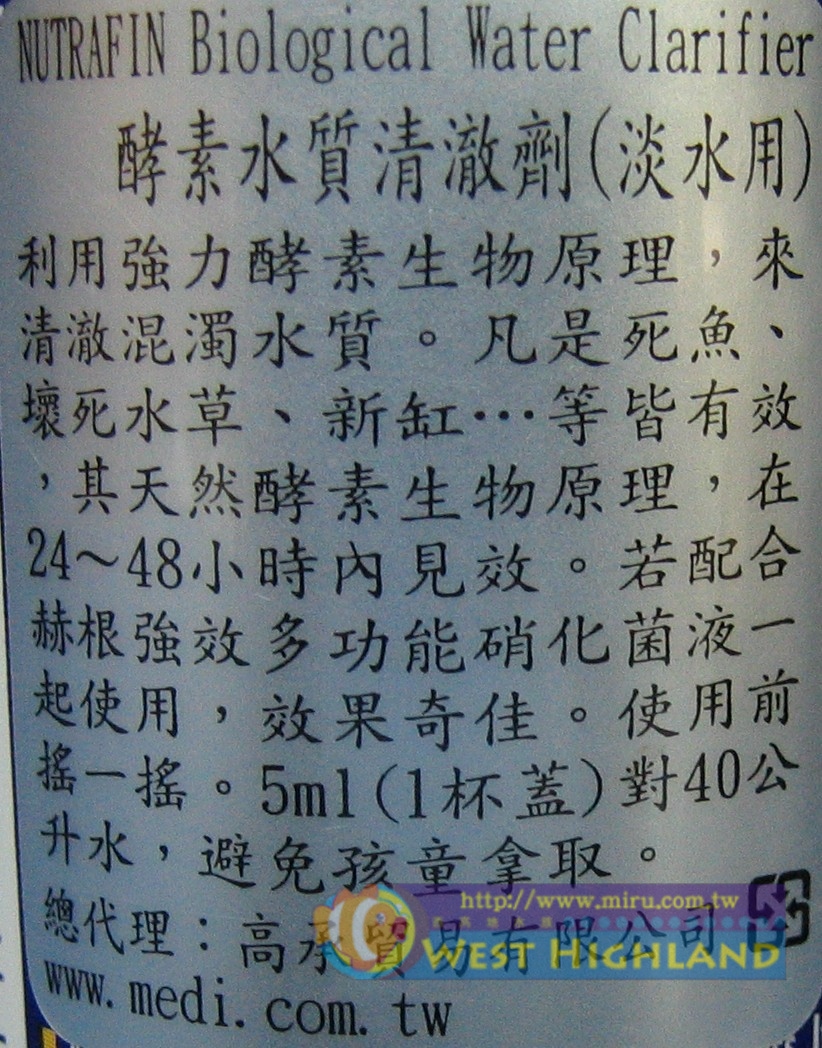 NUTRAFIN Biological Water Clarifier
酵素水質清澈劑(淡水用)
利用強力酵素生物原理，來
清澈混濁水質。凡是死魚、
壞死水草、新缸…等皆有效
，其天然酵素生物原理，在
24～48小時內見效。若配合
赫根強效多功能硝化菌液一
起使用，效果奇佳。使用前
搖一搖。5ml(1杯蓋)對40公
升水，避免孩童拿取。
http://www.miru.com.tw
總代理：高承貿易有限公司
WEST HIGHLAND
www.medi.com.tw